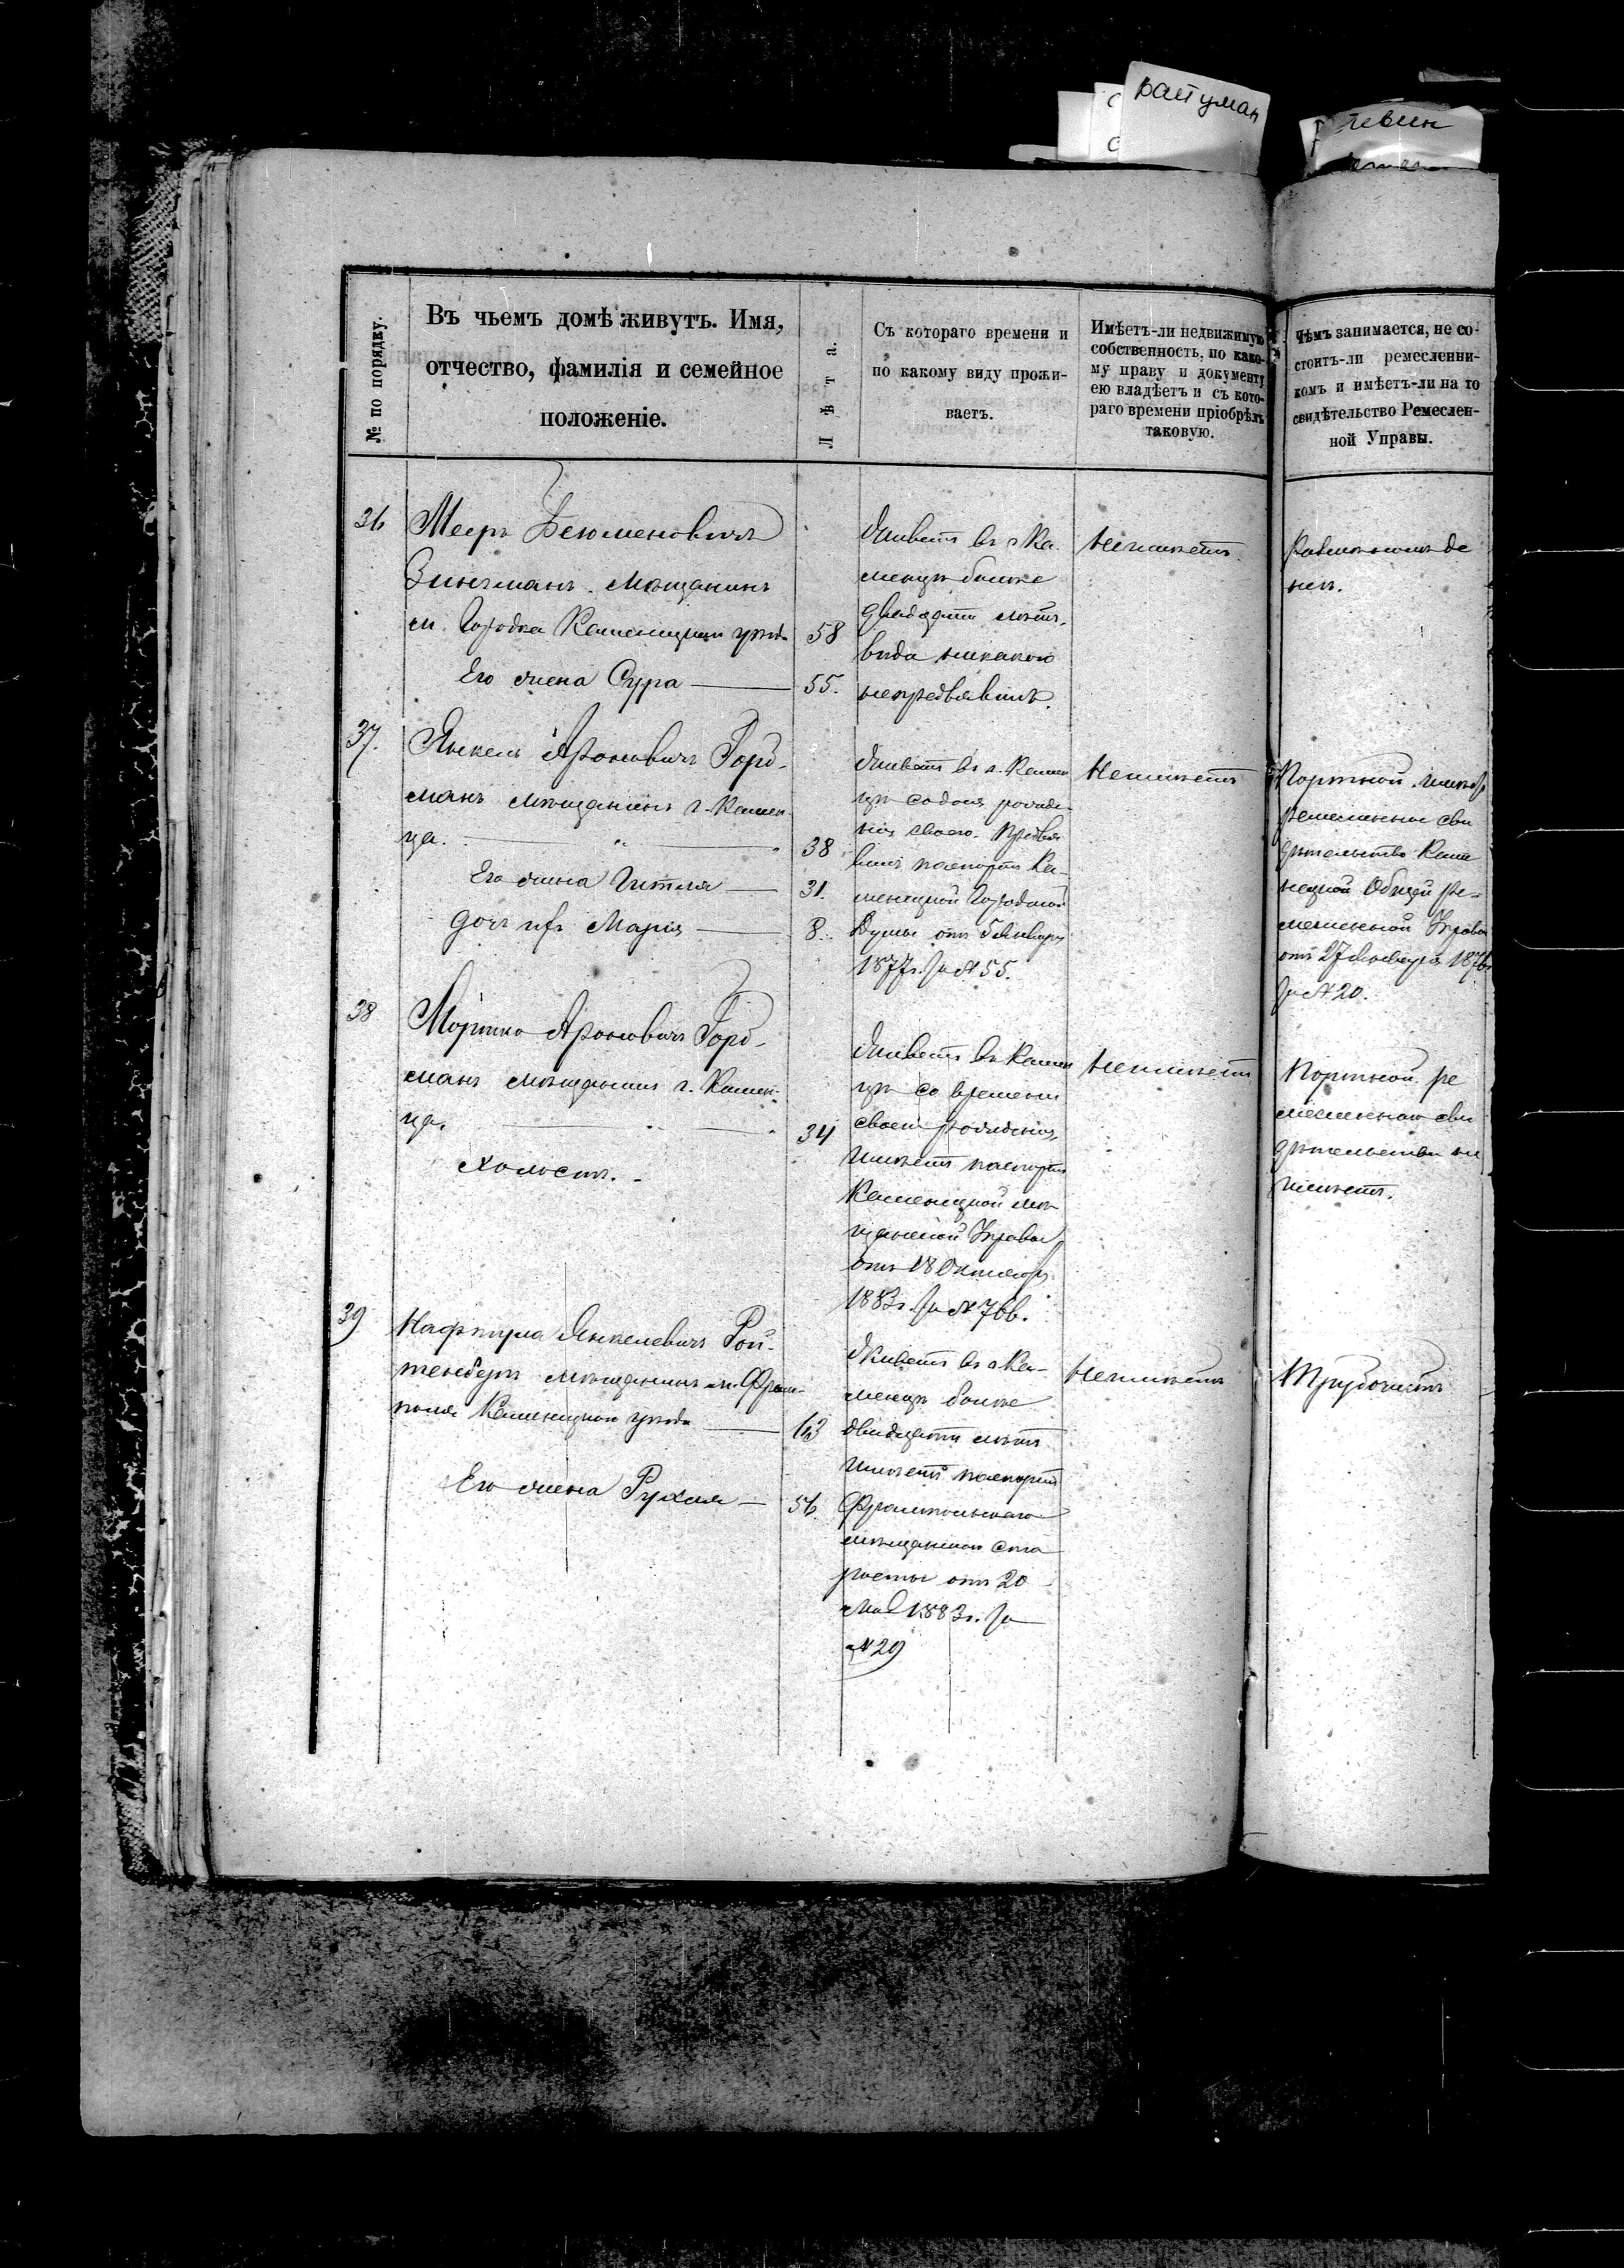 райгуман
левин
№ по порядку.
Въ чьемъ домѣ живутъ. Имя,
отчество, фамилія и семейное
положеніе.
Лѣта.
Съ котораго времени и
по какому виду прожи-
ваетъ.
Имѣетъ-ли недвижимую
собственность, по како-
му праву и документу
ею владѣетъ и съ кото-
раго времени пріобрѣлъ
таковую.
Чѣмъ занимается, не со-
стоитъ-ли ремесленни-
комъ и имѣетъ-ли на то
свидѣтельство Ремеслен-
ной Управы.
36
Мееръ
Зингманъ. мѣщанинъ
м. Городка Каменецкаго уѣзда
58
Его жена Сура
55.
Живетъ въ г. Ка-
менцѣ болѣе
двадцати лѣтъ,
вида никакого
непредъявилъ.
Неимѣетъ.
37.
Янкель Ароновичъ
манъ мѣщанинъ г. Камен-
ца.
38
Его жена Гитля
31.
дочь ихъ Марія
8.
Живетъ въ г. Камен
цѣ со дня рожде-
нія своего. Предъя
вилъ паспортъ Ка-
менецкой Городской
Думы отъ 5 Января
1877 г. за № 55.
Неимѣетъ
Портной. имѣетъ
ремесленное сви
дѣтельство Каме
нецкой Общей Ре-
месленной Управы
отъ 27 1876
за № 20.
38
Мошко Ароновичъ
манъ мѣщанинъ г. Камен-
ца.
34
Холостъ.
Живетъ въ Камен
цѣ со времени
своего рожденія,
Имѣетъ паспортъ
Каменецкой мѣ
щанской Управы
отъ 18 Октября
1883 г. за № 766.
Неимѣетъ
Портной. ре
месленнаго сви
дѣтельства не
имѣетъ.
39
Нафтула Янкелевичъ Рой-
тенберъ мѣщанинъ м. Фрам-
поля Каменецкаго уѣзда
63
Его жена Рухля
56.
Живетъ въ г. Ка-
менцѣ болѣе
двадцати лѣтъ
Имѣетъ паспортъ
Фрампольскаго
мѣщанскаго Ста
росты отъ 20
Мая 1883 г. за
№ 29
Неимѣетъ
Трубочистъ